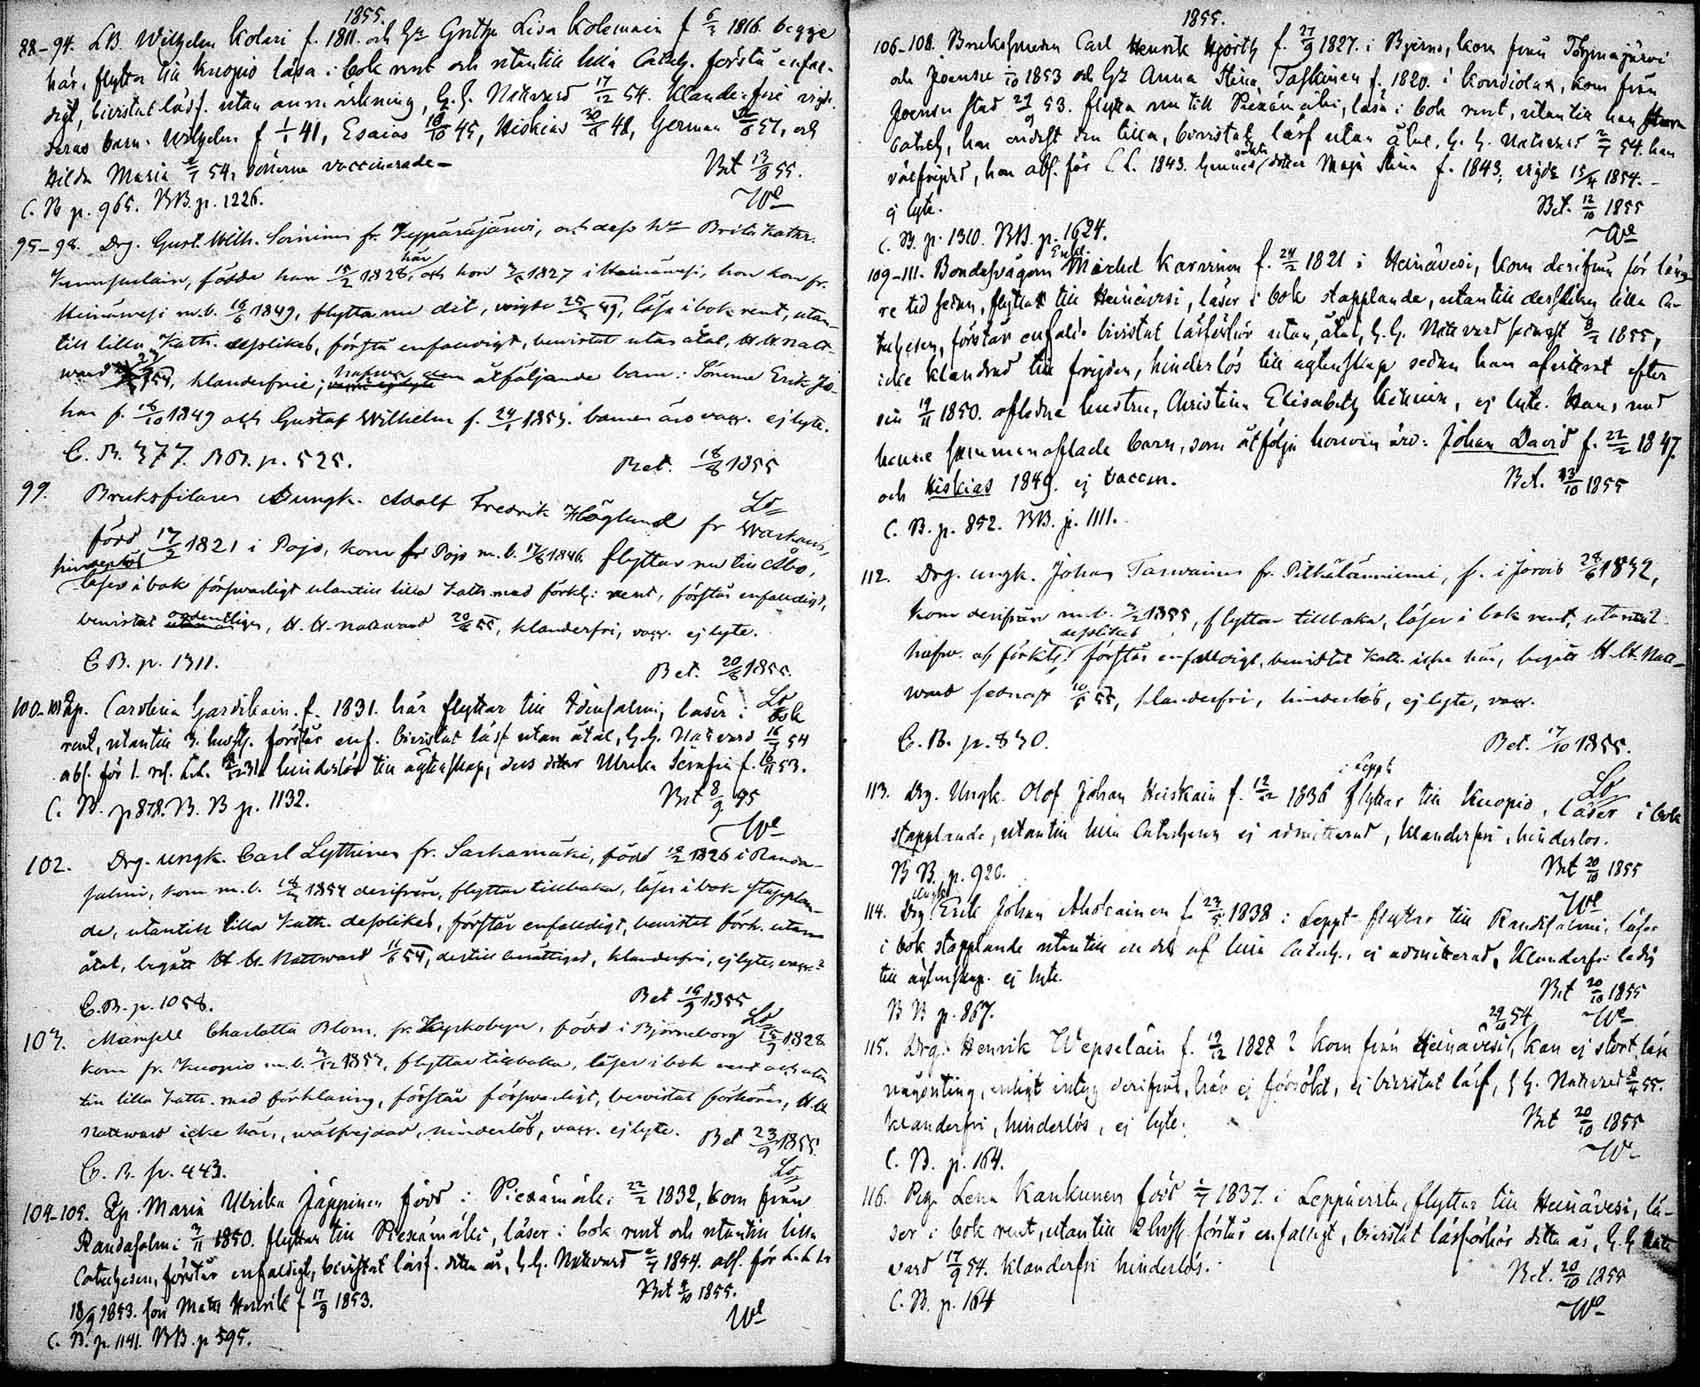 1855.
88-94. LB. Wilhelm Kolari f. 1811. och Hu Gretha Lisa Kolemain f 1816. begge
här, flytta till Kuopio läsa i bok rent och utantill lilla Catech. förstå enfal-
digt, bevistat läsf. utan anmärkning, H. H. Nattvard 17/12 54. Klanderfrie
deras barn. Wilhelm f 1/1 41, Esaias 45, Hiskias 48, Herman 51, och
Hilda Maria 54, sönerna vaccinerade—
Bet 13/8 55.
C. B p. 965. BB. p. 1226.
95-98. Drg. Gust. Wilh. Soininen fr. och dess Hu Brita Kathr.
födde han 15/2 1828, här och hon 1827 i Heinävesi, hon kom fr.
Heinävesi m.b. 16/6 1849, flytta nu dit, läsa i bok rent, utan-
till lilla Kath. dessliket, förstå enfaldigt, bevistat utan åtal, H. H. Natt-
ward klanderfrie; åtföljande barn: Sönerna Erik Jo-
han f. 18/10 1849 och Gustaf Wilhelm f. 1853. barnen äro vacc. ej lyte.
C. B. 377. BB. p. 525.
Bet. 18/8 1855
99. Bruksfilaren Adolf Fredrik Höglund fr Warkaus,
född 17/2 1821 i Pojo, kom fr Pojo m.b. 1846 flyttar nu till Åbo,
hinderlös
läser i bok försvarligt utantill lilla Kath. med förkl: rent, förstår enfaldigt,
bevistat ordentligen, H. H. nattward klanderfri, vacc. ej lyte.
C B. p. 1311.
Bet. 20/8 1855.
100-101 Carolina Gardikain. f. 1831. här flyttar till Idensalmi, läser i bok
rent, utantill 3. hufst. förstår enf. bevistat läsf utan åtal, H. H. Nattvard 54
abs. för 1. hinderlös till äktenskap; dess dotter Ulrika f. 53.
C. B. p 878. B. B p. 1132.
Bet 8/9 55
102. Drg. ungk. Carl Lyttinen fr. Sarkamäki, född 1826 i Randa-
salmi, kom m.b. 1854 derifrån, flyttar tillbaka, läser i bok stapplan-
de, utantill lilla Kath. dessliket, förstår enfaldigt, bevistat förh. utan
åtal, begått H. H. Nattward 54, dertill berättigad, klanderfri, ej lyte, vacc.
C. B. p. 1058.
Bet 16/9 1855
103. Mamsell Charlotta Blom, fr. född i Björneborg 1828
kom fr. Kuopio m.b. flyttar tillbaka, läser i bok rent och utan
till lilla Kath. med förklaring, förstår försvarligt, bevistat förhören, H. H
nattward icke här, wälfrejdad, hinderlös, vacc. ej lyte.
Bet 23/9 1855.
C. B. p. 443.
104-105. Maria Ulrika Jäppinen född i Piexämäki 22/2 1832, kom från
Randasalmi 1850. flyttar till Piexämäki, läser i bok rent och utantill lilla
Catechesen, förstår enfaldigt, bevistat läsf. detta år, H. H. Nattvard 1854. abs. för
18/9 1853. son Mats Henrik f 17/3 1853.
Bet 1855.
C. B. p 1141. BB. p 595.
1855.
106-108. Bruksmeden Carl Henrik Hjorth f. 27/9 1827. i Bjerno, kom från Tohmajärvi
och Joensu 1853 och Hu Anna Stina Taskinen f. 1820. i Kondiolax, kom från
Joensu stad 53. flytta nu till Piexämäki, läsa i bok rent, utantill han stora
catech, hon endast den lilla, bevistat läsf utan åtal, H. H. Nattvard 54. han
välfrejdad, hon abs. för 1843. hennes dotter Maja Stina f. 1843, vigde 15/4 1854.—
ej lyte.
Bet. 12/10 1855
C. B. p. 1310. BB. p. 1624.
109-111. Bondesvågern Michel Karvinen f. 24/2 1821 i Heinävesi, kom derifrån för läng-
re tid sedan, flyttar till Heinävesi, läser i bok stapplande, utantill dessliket lilla Ca-
techesen, förstår enfaldt. bevistat läsförhör utan åtal, H. H. Nattvard senast 1855,
icke klandrad till frejden, hinderlös till äktenskap sedan han afvittrat efter
sin 19/11 1850. aflidna hustru, Christina Elisabeth ej lyte. Hans med
henne sammanaflade barn, som åtfölja honom äro: Johan David f. 22/2 1847.
och Hiskias 1849. ej vaccin.
Bet. 13/10 1855
C. B. p. 852. BB. p. 1111.
112. Drg. ungk. Johan Tarvainen fr. Pitkälänniemi, f. i Jorois 1832,
kom derifrån m.b. 1855, flyttar tillbaka, läser i bok rent, utantill
af förklg: dessliket förstår enfaldigt, bevistat Kath. icke här, begått H. H. Natt-
ward sednast 55, klanderfri, hinderlös, ej lyte, vacc.
C. B. p. 830.
Bet. 17/10 1855.
113. Drg. Ungk. Olof Johan Heiskain f. 1836 i Leppv. flyttar till Kuopio, läser i bok
stapplande, utantill lilla Catechesen ej admitterad, klanderfri, hinderlös.
Bet 20/10 1855
B B. p. 920.
114. Drg Ungk Erik Johan Ahokainen f. 1838 i Leppv flyttar till Randasalmi, läser
i bok stapplande utantill en del af lilla Catech., ej admitterad, klanderfri ledig
till äktenskap. ej lyte.
Bet 20/10 1855
B B p. 867.
115. Drg. Henrik Wepseläin f. 19/12 1828 kom från Heinävesi 54, kan ej stort läsa
någonting, enligt intyg derifrån, här ej försökt, ej bevistat läsf, H. H. Nattvard 55.
klanderfri, hinderlös, ej lyte.
Bet 20/10 1855
C. B. p. 164.
116. Pig. Lena Kankunen född 1837. i Leppävirta, flyttar till Heinävesi, lä-
ser i bok rent, utantill 2 hufst. förstår enfaldigt, bevistat läsförhör detta år, H. H Natt
vard 17/9 54. klanderfri hinderlös.
Bet. 20/10 1855
C. B. p. 164